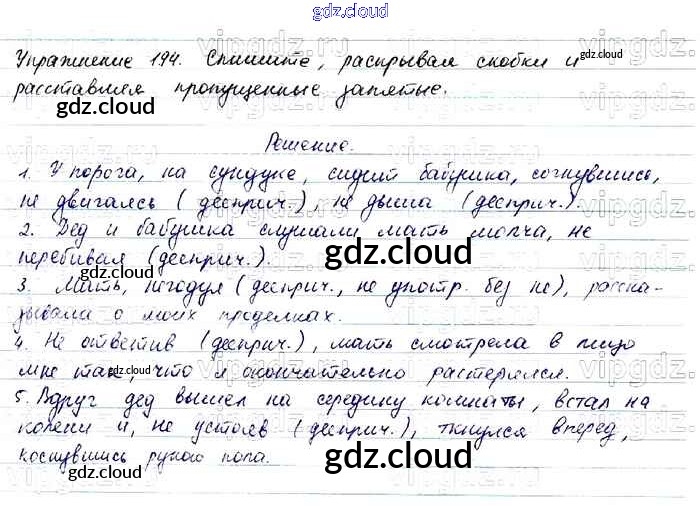 gdz.cloud
Упражнение 194. Спишите, раскрывая скобки и
расставляя пропущенные запятые.
Решение.
1. У порога, на сундуке, сидит бабушка, согнувшись,
не двигаясь (дееприч.), не дыша (дееприч.).
2. Дед и бабушка слушали мать молча, не
перебивая (дееприч.).
3. Мать, негодуя (дееприч., не употр. без не), расска-
зывала о моих проделках.
4. Не ответив (дееприч.), мать смотрела в лицо
мне так, что я окончательно растерялся.
5. Вдруг дед вышел на середину комнаты, встал на
колени и, не устояв (дееприч.), ткнулся вперед,
коснувшись рукою пола.
gdz.cloud